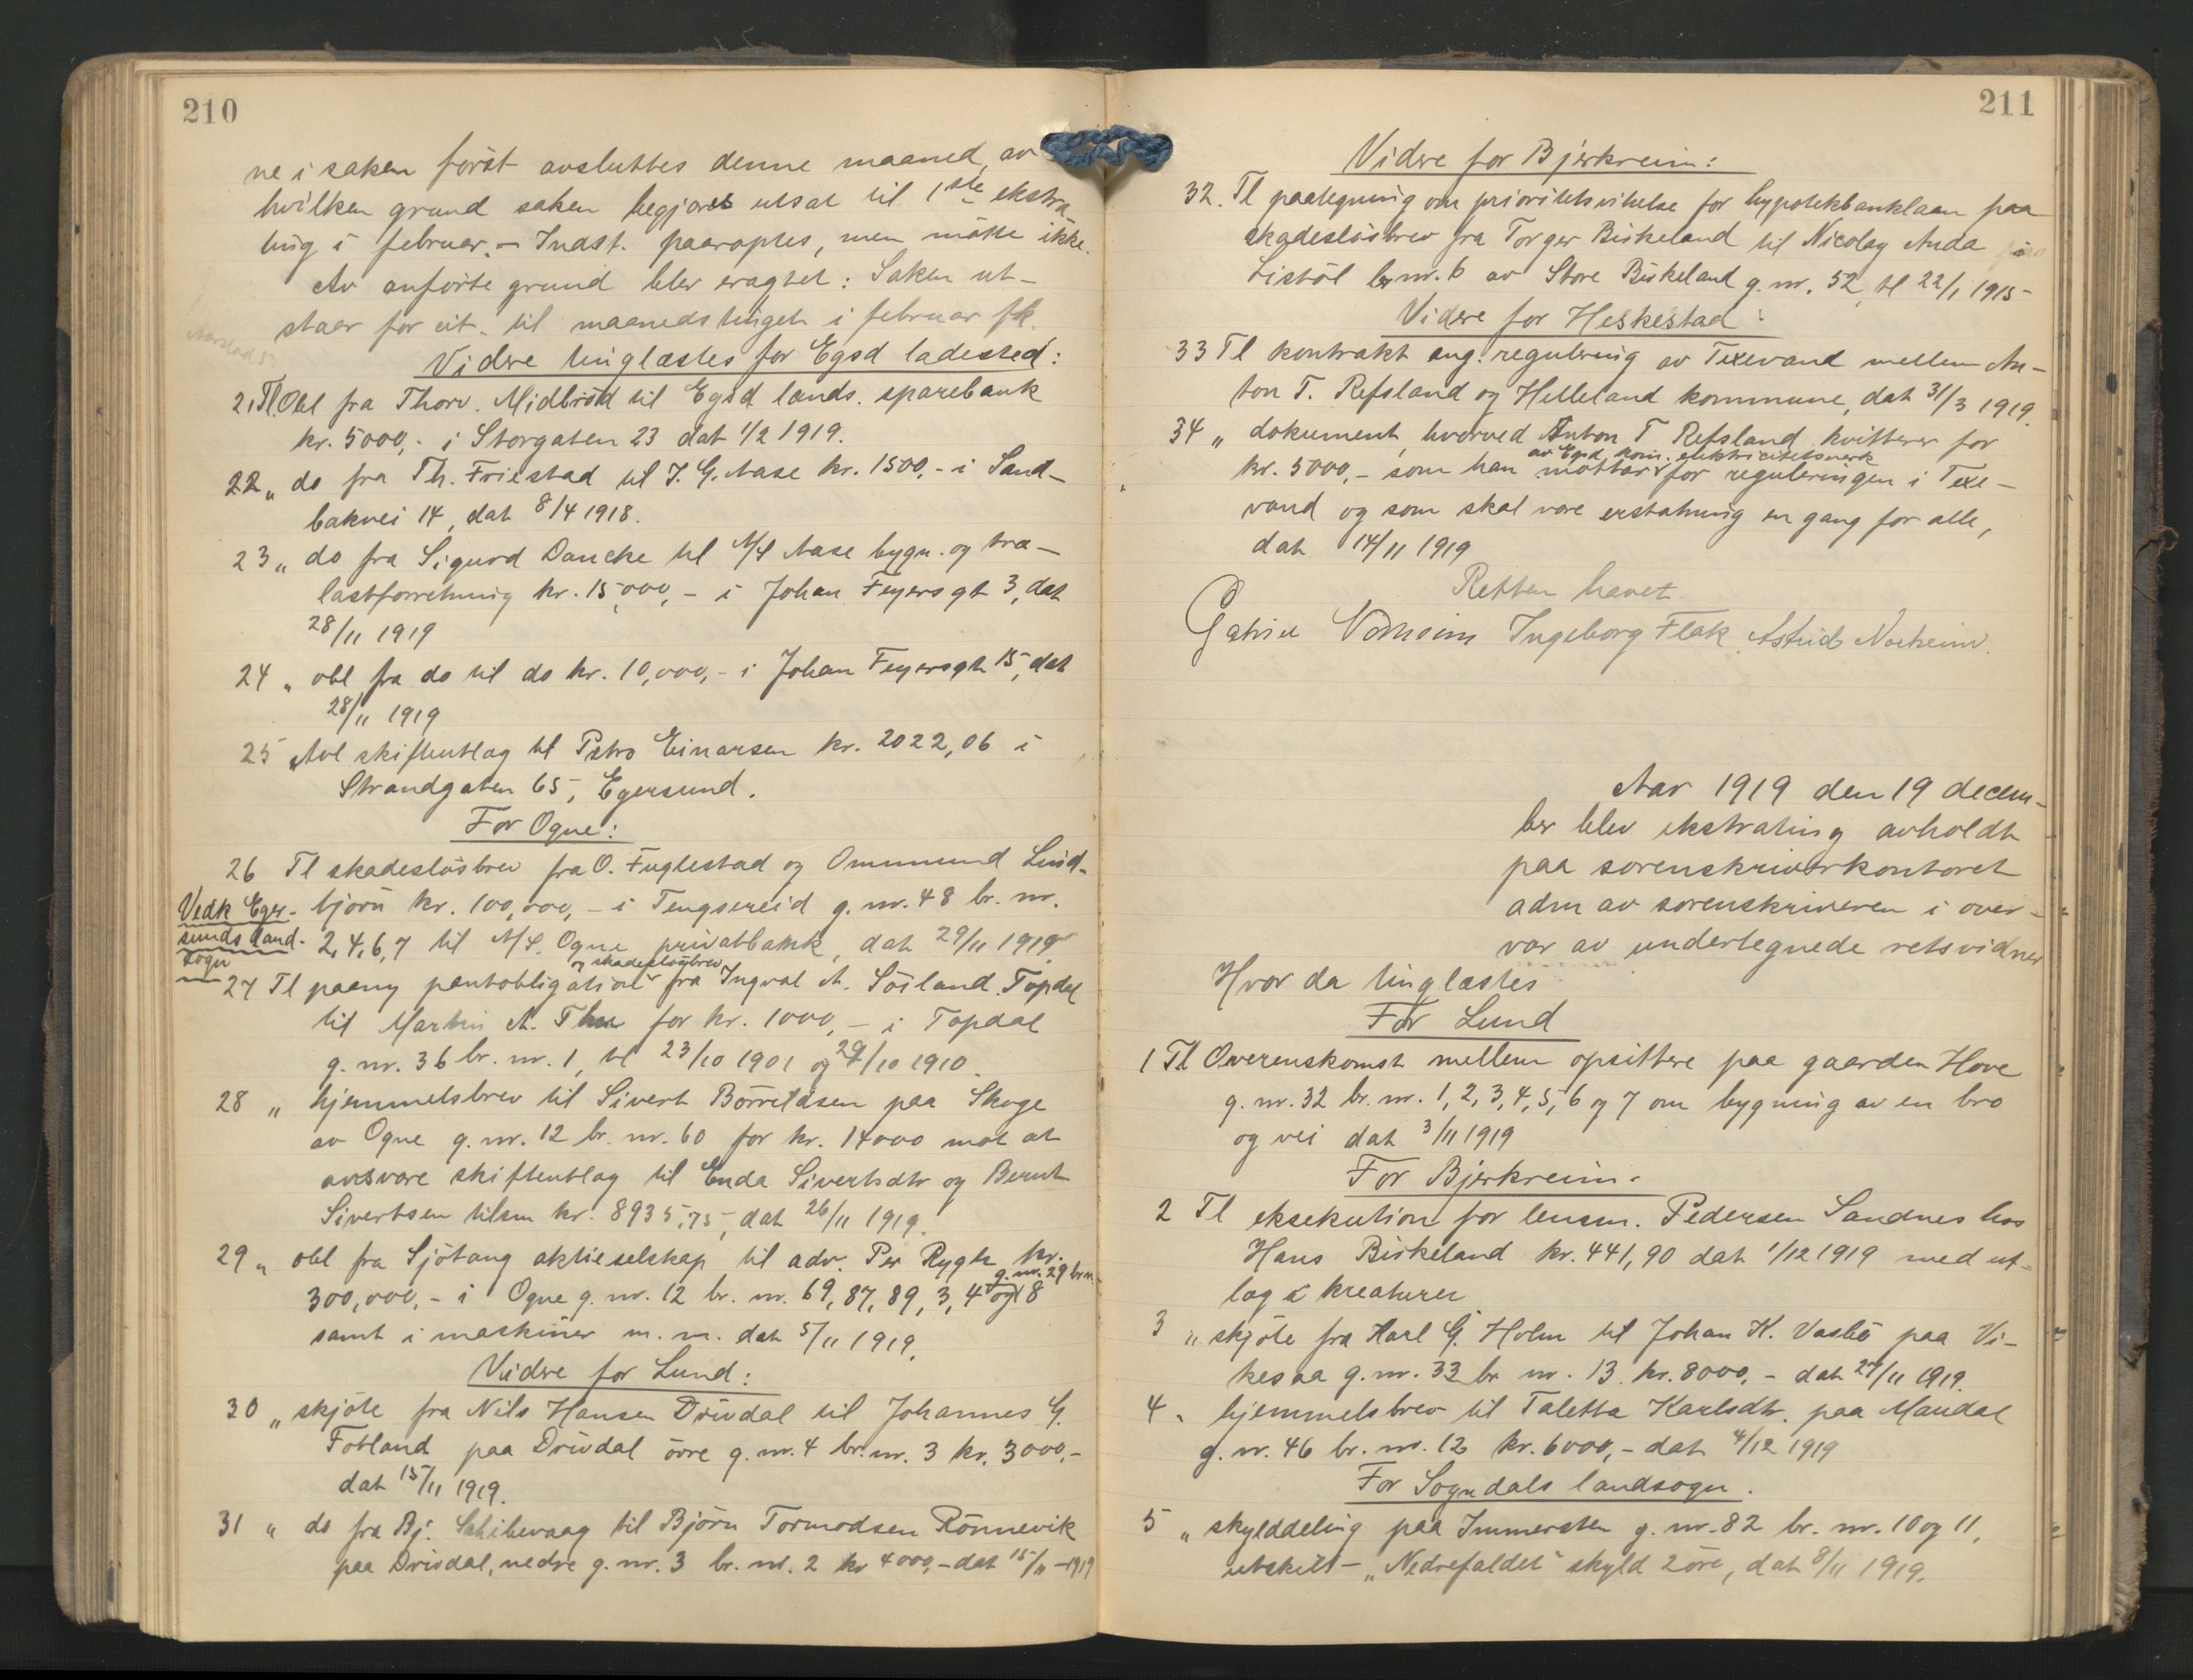 210
ne i saken först avsluttes denne maaned, av
hvilken grund saken begjæres utsat til 1ste ekstra
ting i februar. - Indst. paaroptes, men mötte ikke.
Av anförte grund blev eragtet: Saken ut-
staar for cit. til maanedstinget i februar fk.
Videre tinglæstes for Egsd ladested:
21 Tl Obl fra Thorv. Midbröd til Egsd lands. sparebank
kr. 5000,- i Storgaten 23 dat 1/2 1919.
22 " do fra Th. Friestad til J. G. Aase kr. 1500,- i Sand-
bakvei 14, dat 8/4 1918.
23 " do fra Sigurd Dancke til A/S Aase bygn. og træ-
lastforretning kr. 15,000,- i Johan Feyersgt 3, dat
28/11 1919
24 " obl fra do til do kr. 10,000,- i Johan Feyersgt 15, dat
28/11 1919
25 Avl skifteutlag til Petro Einarsen kr. 2022,06 i
Strandgaten 65, Egersund.
For Ogne:
26 Tl skadeslösbrev fra O. Fuglestad og Ommund Lind-
Vedk Eger-
sunds land-
sogn
björn kr. 100,000,- i Tengsereid g. nr. 48 br. nr.
2, 4, 6, 7 til A/S. Ogne privatbank, dat 29/11 1919
og skadeslösbrev
27 Tl paany pantobligation fra Ingval A. Söiland. Topdal
til Martin A. Thu for kr. 1000,- i Topdal
g. nr. 36 br. nr. 1, tl 23/10 1901 og 29/10 1910.
28 " hjemmelsbrev til Sivert Börretdsen paa Skoge
av Ogne g. nr. 12 br. nr. 60 for kr. 14000 mot at
avsvare skifteutlag til Enda Sivertsdtr og Bernt
Sivertsen tilsm kr. 8935,75, dat 26/11 1919.
29 " obl fra Sjötang aktieselskap til adv. Per Rygh kr.
g. nr. 29 br nr.
300,000,- i Ogne g. nr. 12 br. nr. 69, 87, 89, 3, 4 og 18
samt i maskiner m. m. dat 5/11 1919.
Videre for Lund:
30 " skjöte fra Nils Hansen Drivdal til Johannes G.
Fotland paa Drivdal övre g. nr. 4 br. nr. 3 kr. 3000,-
dat 15/11 1919.
31 " do fra Bj. Schibevaag til Björn Tormodsen Rönnevik
paa Drivdal, nedre g. nr. 3 br. nr. 2 kr 4000,- dat 15/11 - 1919
211
Videre for Bjerkreim:
32. Tl paategning om prioritetsvikelse for hypotekbanklaan paa
skadeslösbrev fra Torger Birkeland til Nicolay Auda i
Listöl br nr. 6 av Store Birkeland g. nr. 52, tl 22/1 1915
Videre for Heskestad:
33 Tl kontrakt ang. regulering av Texevand mellem An-
ton T. Refsland og Helleland kommune, dat 31/3 1919.
34 " dokument, hvorved Anton T Refsland kvitterer for
av Egsd kom. elektricitetsverk
kr. 5000,- som han mottar for reguleringen i Texe-
vand og som skal være erstatning en gang for alle,
dat 14/11 1919
Retten hævet
Gabriel Ingeborg Flak. Astrid Norheim.
Aar 1919 den 19 decem-
ber blev ekstrating avholdt
paa sorenskriverkontoret
adm av sorenskriveren i over-
vær av undertegnede retsvidner
Hvor da tinglæstes
For Lund
1 Tl Overenskomst mellem opsittere paa gaarden Hove
g. nr. 32 br. nr. 1, 2, 3, 4, 5, 6 og 7 om bygning av en bro
og vei dat 3/11 1919
For Bjerkreim.
2 Tl eksekution for lensm. Pedersen Sandnes hos
Hans Birkeland kr. 441,90 dat 1/12 1919 med ut-
læg i kreaturer
3 " skjöte fra Karl G. Holm til Johan K. Vasbö paa Vi-
kesaa g. nr. 33 br nr. 13. kr. 8000,- dat 27/11 1919.
4 " hjemmelsbrev til Taletta Karlsdtr. paa Maudal
g. nr. 46 br. nr. 12 kr. 6000,- dat 4/12 1919
For Sogndals landsogn.
5 " skylddeling paa Immersten g. nr. 82 br. nr. 10 og 11,
utskilt - "Nedrefaldet" skyld 2 öre, dat 8/11 1919.